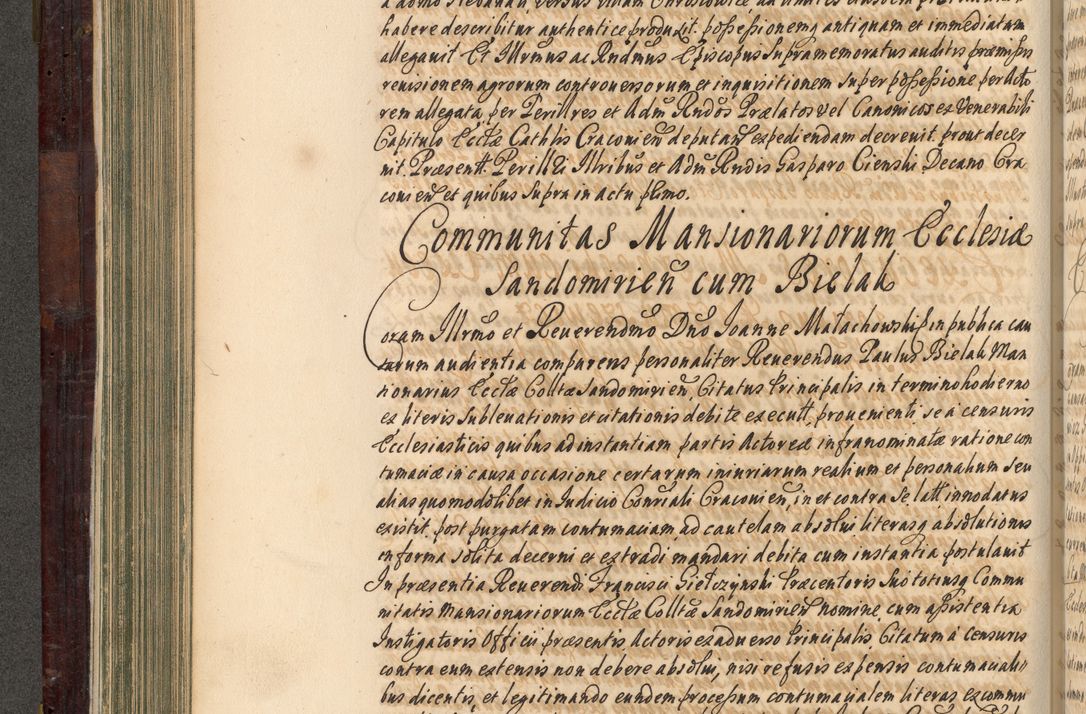 habere describitur authentice produxit. possessionemq antiquam et immediatam
allegavit Et Illrmus ac Rndmus Episcopus supramemoratus auditis præmissis
revisionem agrorum controversorum et inquisitionem super possessione per Acto
rem allegata per Perillres et Adm Rndos Prælatos vel Canonicos ex Venerabili
Capitulo Ecclæ Cathlis Cracovien deputan expediendam decrevit prout decer
nit. Præsentt Perill Illribus et Adm Rndis Gasparo Cienski Decano Cra
covien et quibus supra in actu primo.
Communitas Mansionariorum Ecclesiæ
Sandomirien cum Bielak
Coram Illrmo et Reverendmo Dno Joanne Małachowski in publica cau
sarum audientia comparens personaliter Reverendus Paulus Bielak Man
sionarius Ecclæ Colltæ Sandomirien, Citatus Principalis in termino hodierno
ex literis sublevationis et citationis debite executt, provenienti se a censuris
Ecclesiasticis quibus ad instantiam partis Actoreæ infranominatæ ratione con
tumaciæ in causa occasione certarum iniuriarum realium et personalium seu
alias quomodolibet in Judicio Conriali Cracovien, in et contra se latt innodatus
existit post purgatam contumaciam ad cautelam absolui literasq absolutionis
in forma solita decerni et extradi mandari debita cum instantia postulavit
In præsentia Reverendi Francisci Giełczynski Præcentoris suo totiusq Commu
nitatis Mansionariorum Ecclæ Colltæ Sandomirien nomine, cum assistentia
Instigatoris Officii præsentis, Actoris ex adverso Principalis Citatum a censuris
contra eum extensis non debere absolui, nisi refusis expensis contumaciali
bus dicentis, et legitimando eundem processum contumacialem literas excommu